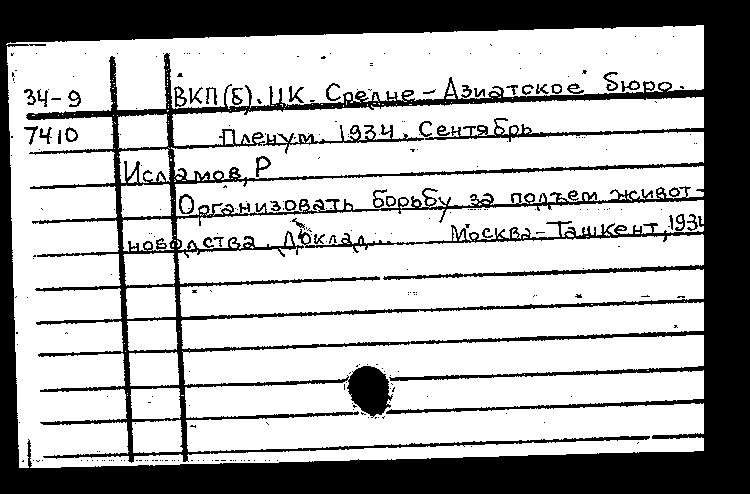 34-9 ВКП(б). ЦК. Средне-Азиатское бюро.
7410 Пленум. 1934. Сентябрь.
Исламов, Р
Организовать борьбу за подъем живот-
новодства. Доклад... Москва-Ташкент, 1934